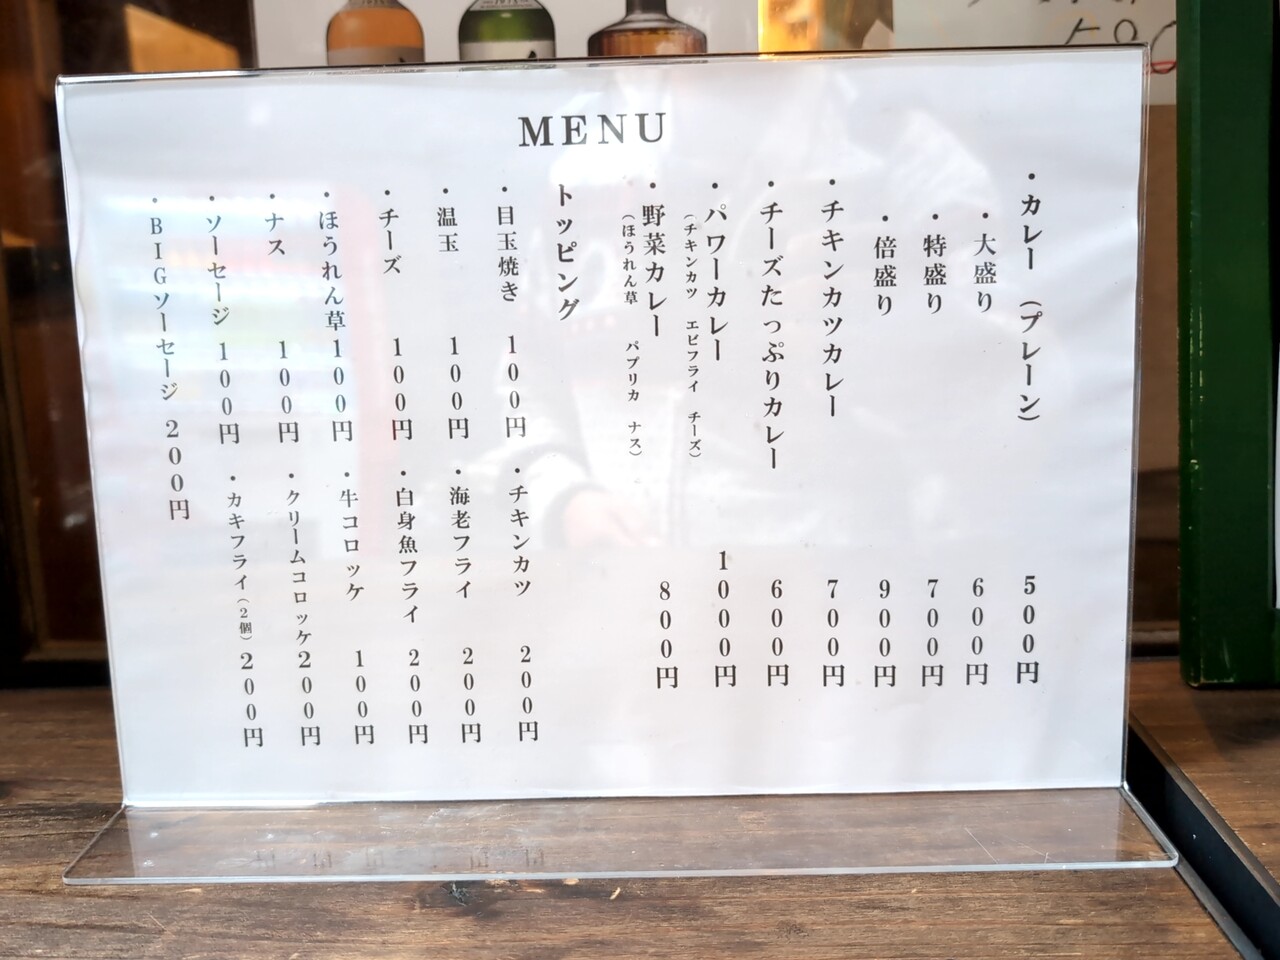 MENU
・カレー （プレーン） 500円
・大盛り 600円
・特盛り 700円
・倍盛り 900円
・チキンカツカレー 700円
・チーズたっぷりカレー 600円
・パワーカレー 1000円
（チキンカツ エビフライ チーズ）
・野菜カレー 800円
（ほうれん草 パプリカ ナス）
トッピング
・目玉焼き 100円
・チキンカツ 200円
・温玉 100円
・海老フライ 200円
・チーズ 100円
・白身魚フライ 200円
・ほうれん草 100円
・牛コロッケ 100円
・ナス 100円
・クリームコロッケ 200円
・ソーセージ 100円
・カキフライ（2個） 200円
・BIGソーセージ 200円